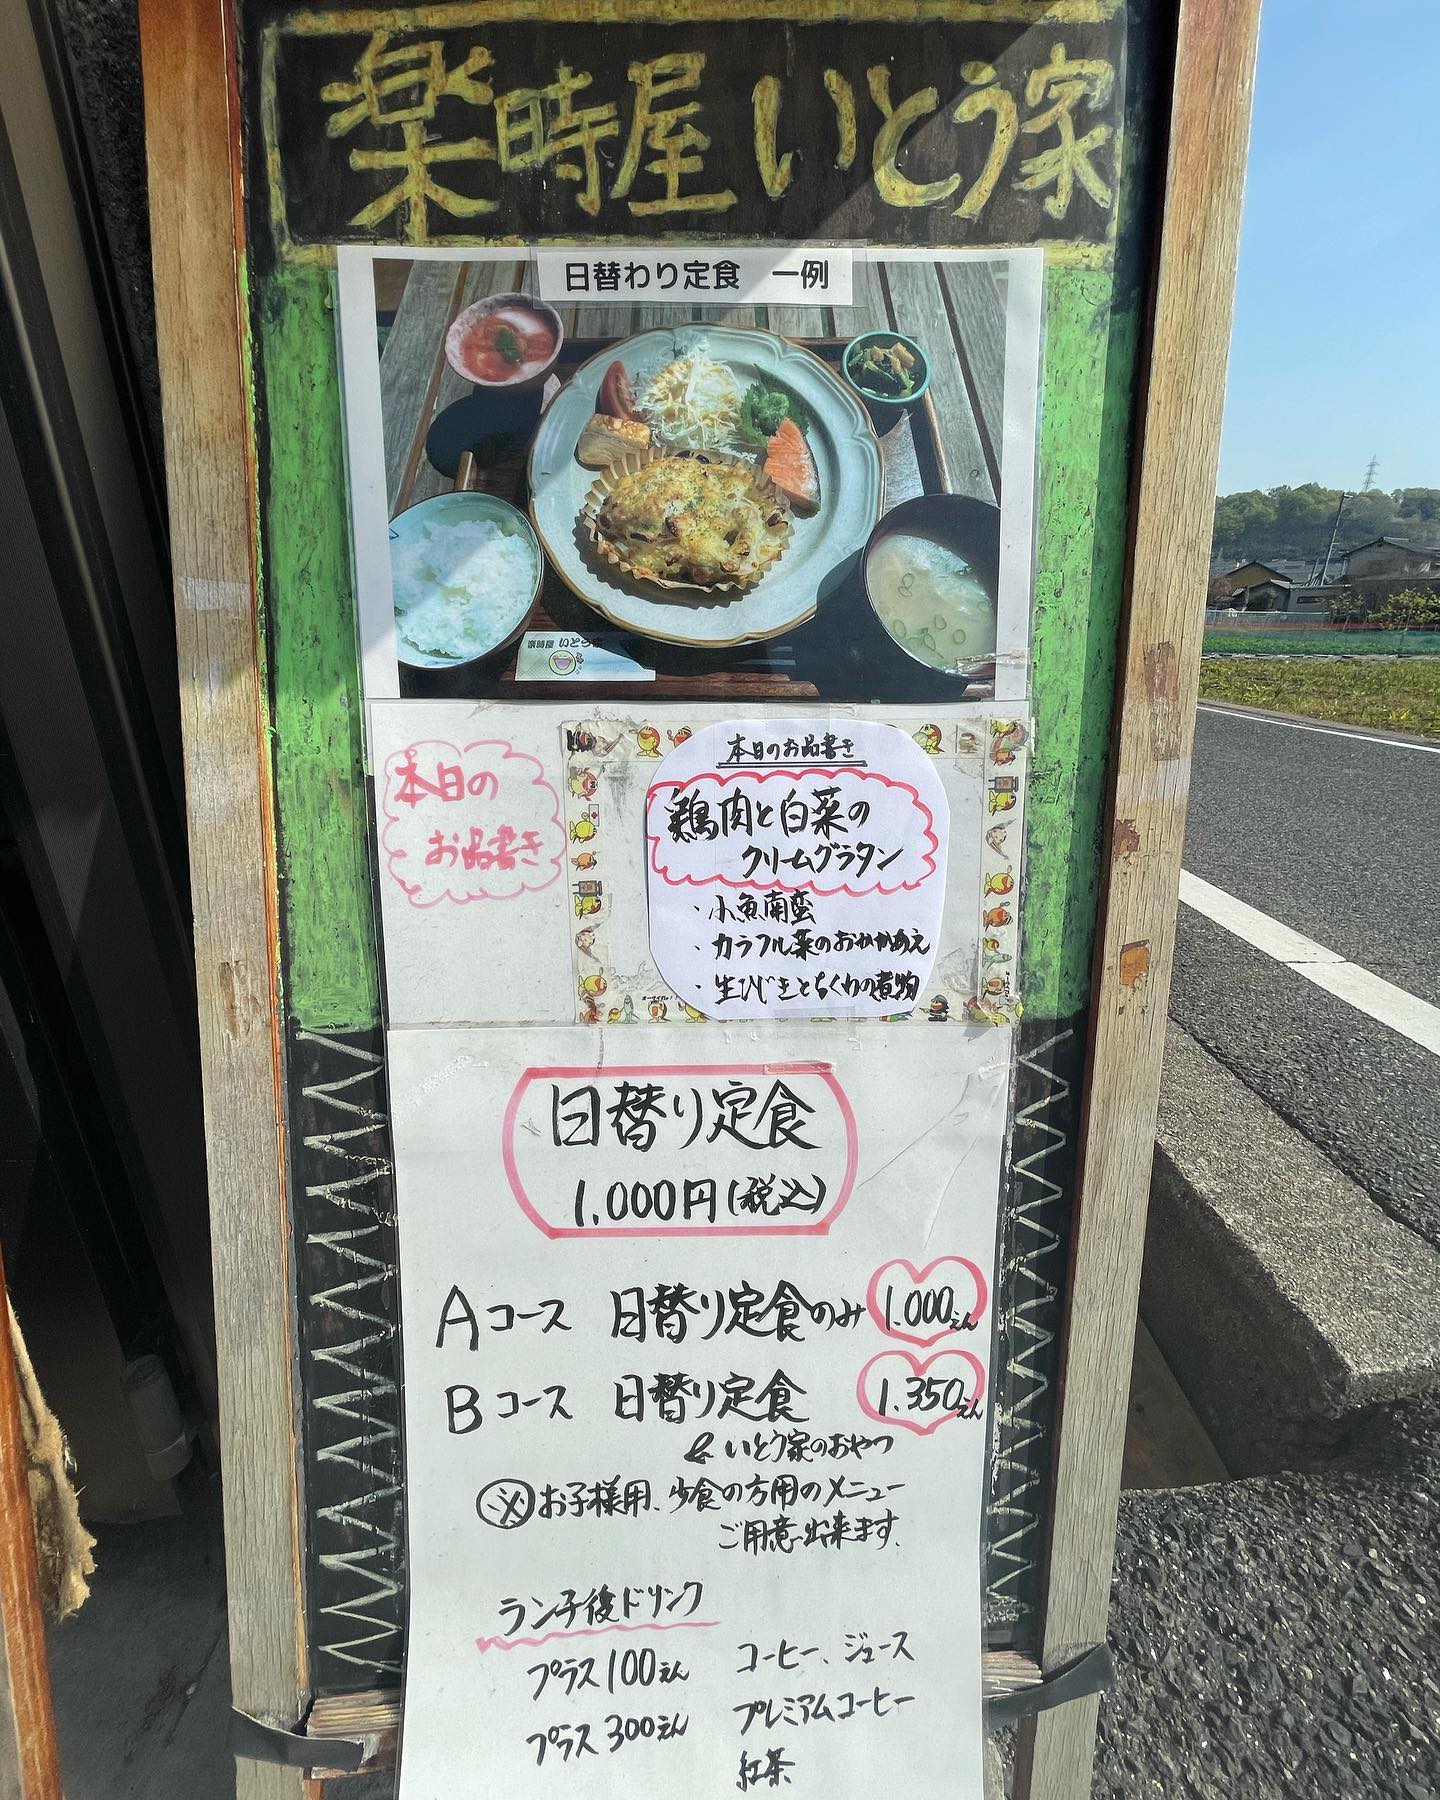 楽時屋 いとう家
日替わり定食 一例
楽時屋 いとう家
本日の
お品書き
本日のお品書き
鶏肉と白菜の
クリームグラタン
・小魚南蛮
・カラフル菜のおかかあえ
・生ひじきとちくわの煮物
日替り定食
1.000円(税込)
Aコース 日替り定食のみ 1.000えん
Bコース 日替り定食 1.350えん
& いとう家のおやつ
※お子様用、少食の方用のメニュー
ご用意出来ます。
ランチ後ドリンク
プラス100えん コーヒー、ジュース
プラス300えん プレミアムコーヒー
紅茶